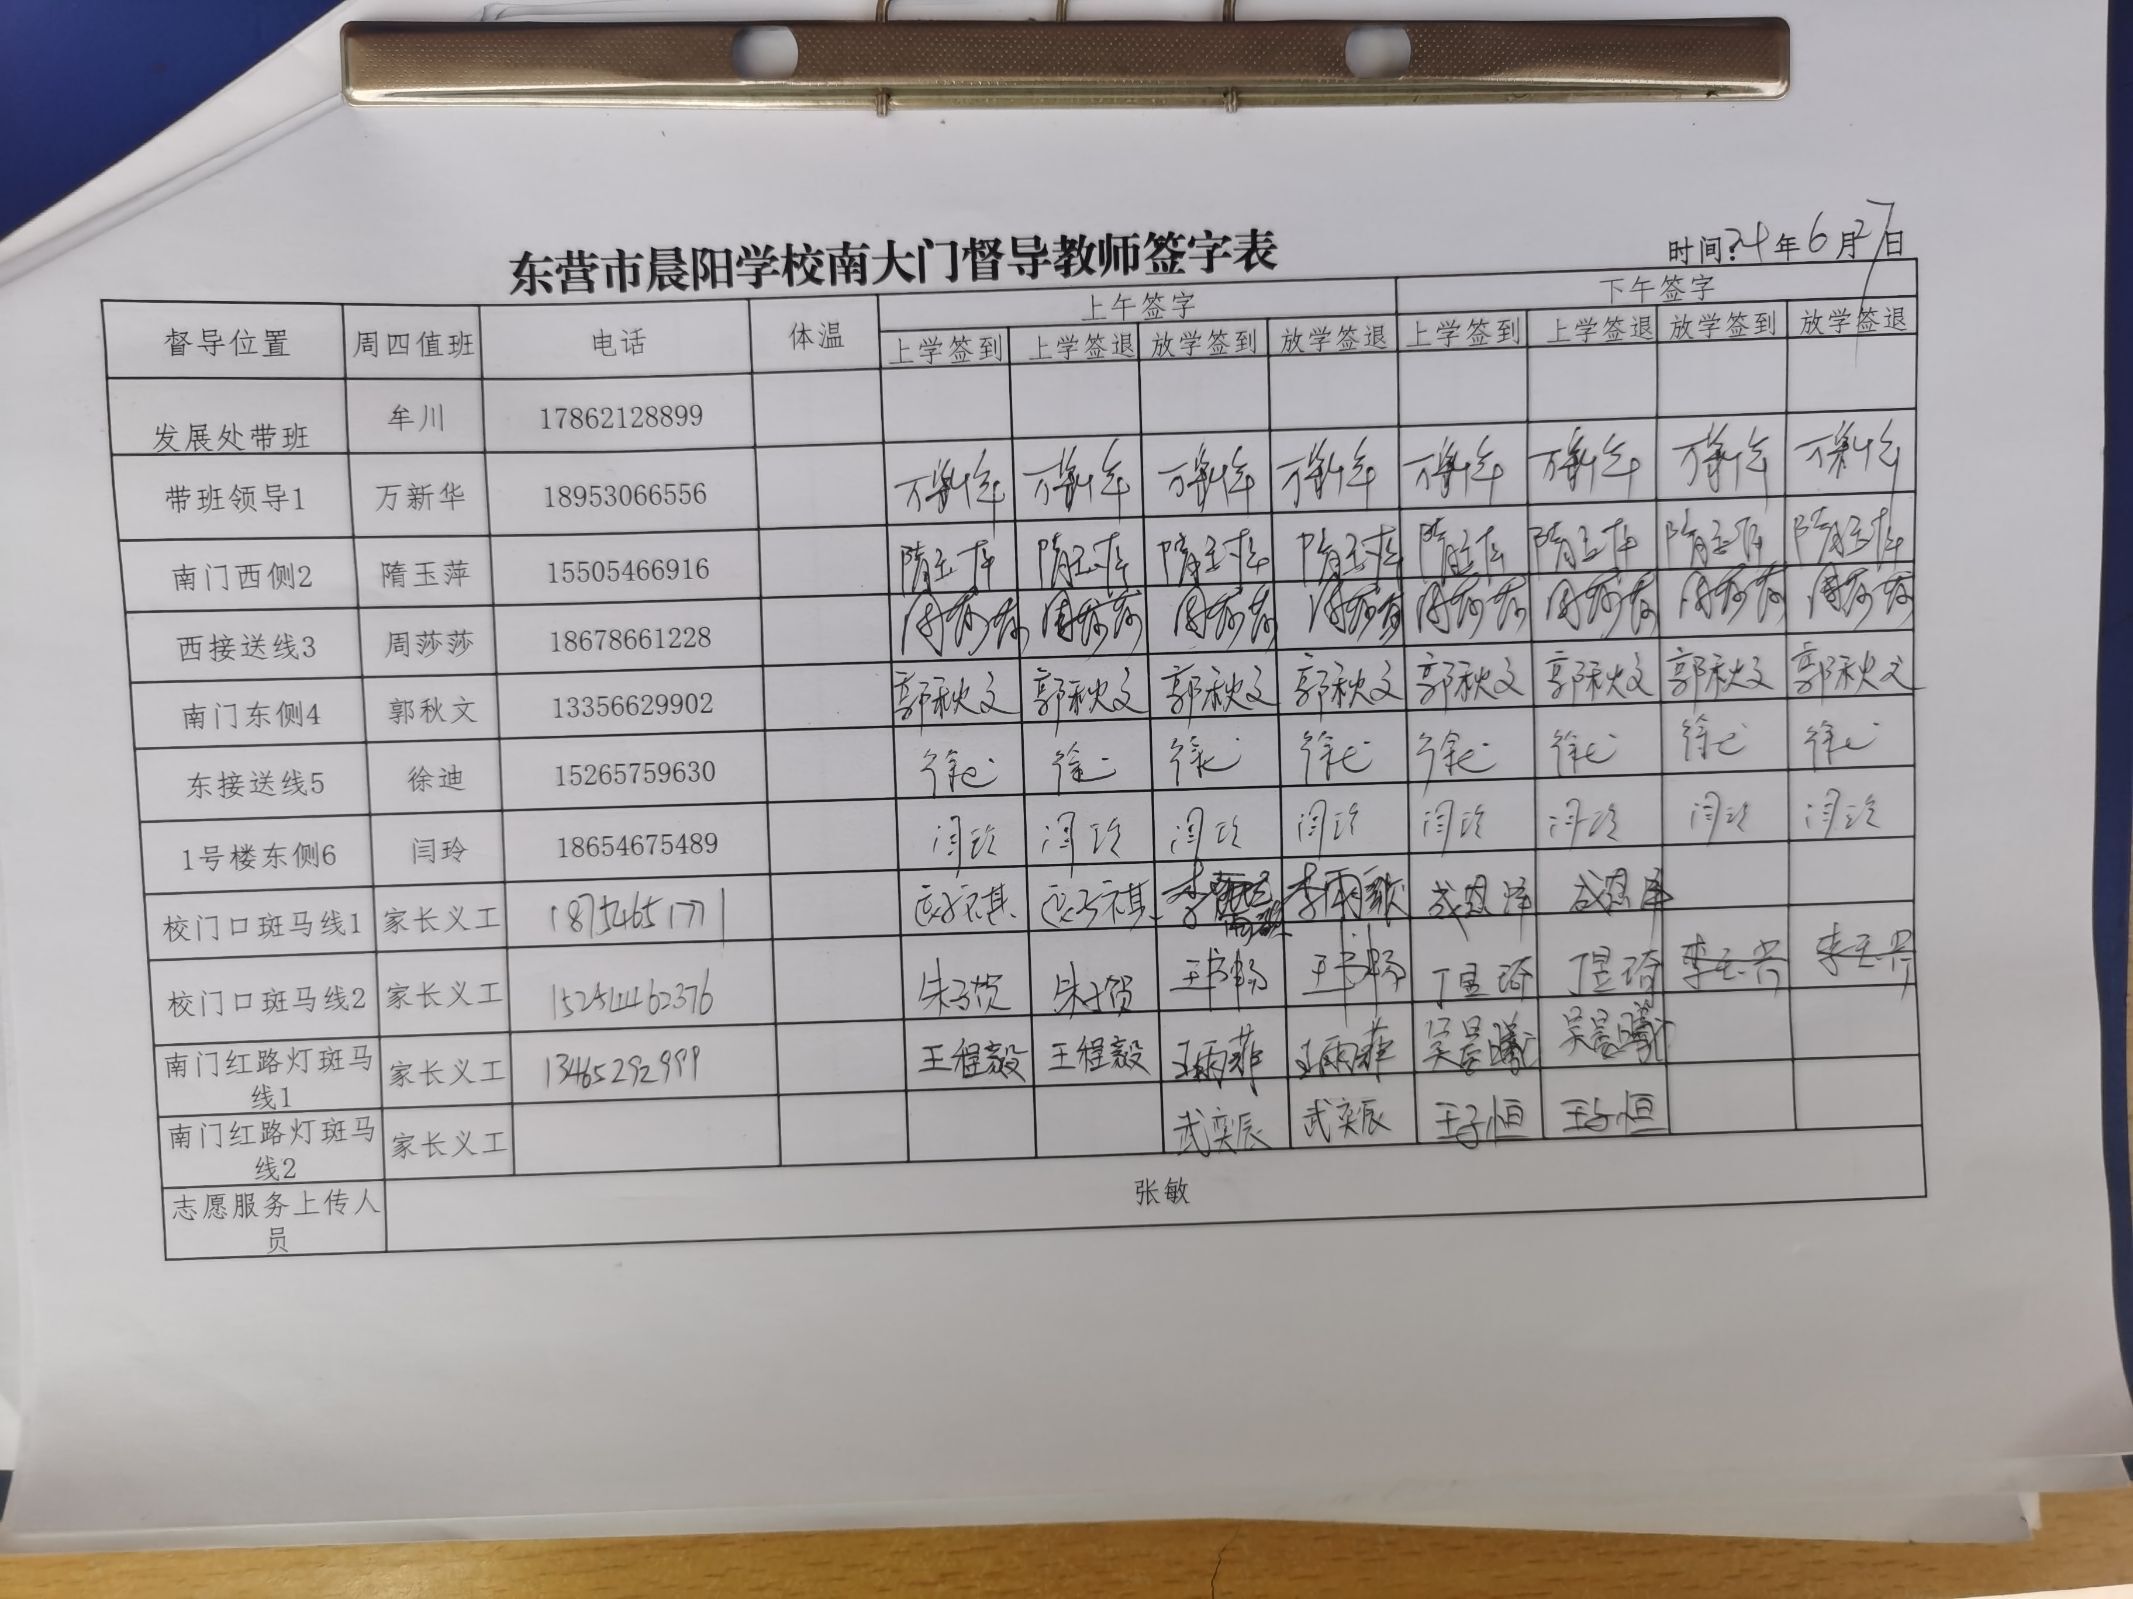 东营市晨阳学校南大门督导教师签字表
时间:24年6月27日
督导位置 周四值班 电话 体温 上午签字 下午签字
上学签到 上学签退 放学签到 放学签退 上学签到 上学签退 放学签到 放学签退
发展处带班 牟川 17862128899
带班领导1 万新华 18953066556 万新华 万新华 万新华 万新华 万新华 万新华 万新华 万新华
南门西侧2 隋玉萍 15505466916 隋玉萍 隋玉萍 隋玉萍 隋玉萍 隋玉萍 隋玉萍 隋玉萍 隋玉萍
西接送线3 周莎莎 18678661228 周莎莎 周莎莎 周莎莎 周莎莎 周莎莎 周莎莎 周莎莎 周莎莎
南门东侧4 郭秋文 13356629902 郭秋文 郭秋文 郭秋文 郭秋文 郭秋文 郭秋文 郭秋文 郭秋文
东接送线5 徐迪 15265759630 徐迪 徐迪 徐迪 徐迪 徐迪 徐迪 徐迪 徐迪
1号楼东侧6 闫玲 18654675489 闫玲 闫玲 闫玲 闫玲 闫玲 闫玲 闫玲 闫玲
校门口斑马线1 家长义工 18754651771 李雨歌 成恩泽 成恩泽
校门口斑马线2 家长义工 朱子贺 朱子贺 王书畅 王书畅 丁昱琦 丁昱琦
南门红路灯斑马 家长义工 13465292999 王程毅 王程毅 王雨菲 王雨菲 吴晨曦 吴晨曦
线1
南门红路灯斑马 家长义工 武奕辰 武奕辰 王子恒 王子恒
线2
志愿服务上传人 张敏
员